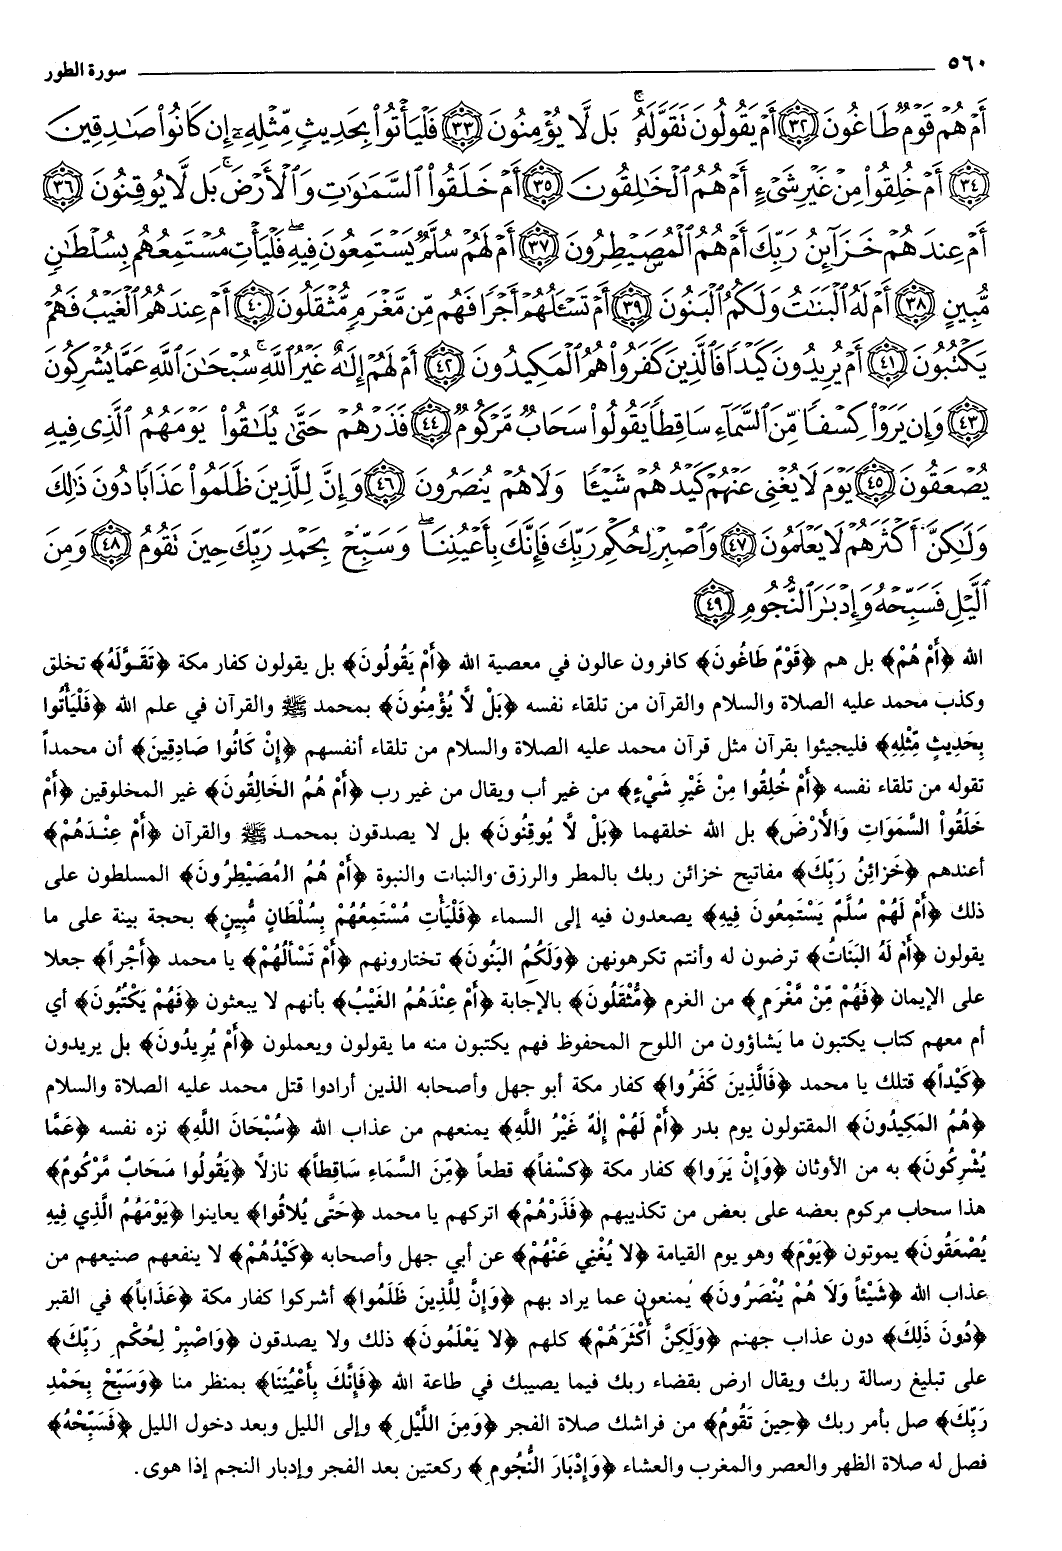 ٥٦٠ سورة الطور
أَمْ هُمْ قَوْمٌ طَاغُونَ ٣٢ أَمْ يَقُولُونَ تَقَوَّلَهُۥ ۚ بَل لَّا يُؤْمِنُونَ ٣٣ فَلْيَأْتُوا۟ بِحَدِيثٍ مِّثْلِهِۦٓ إِن كَانُوا۟ صَـٰدِقِينَ
٣٤ أَمْ خُلِقُوا۟ مِنْ غَيْرِ شَىْءٍ أَمْ هُمُ ٱلْخَـٰلِقُونَ ٣٥ أَمْ خَلَقُوا۟ ٱلسَّمَـٰوَٰتِ وَٱلْأَرْضَ ۚ بَل لَّا يُوقِنُونَ ٣٦
أَمْ عِندَهُمْ خَزَآئِنُ رَبِّكَ أَمْ هُمُ ٱلْمُصَۣيْطِرُونَ ٣٧ أَمْ لَهُمْ سُلَّمٌ يَسْتَمِعُونَ فِيهِ ۖ فَلْيَأْتِ مُسْتَمِعُهُم بِسُلْطَـٰنٍ
مُّبِينٍ ٣٨ أَمْ لَهُ ٱلْبَنَـٰتُ وَلَكُمُ ٱلْبَنُونَ ٣٩ أَمْ تَسْـَٔلُهُمْ أَجْرًا فَهُم مِّن مَّغْرَمٍ مُّثْقَلُونَ ٤٠ أَمْ عِندَهُمُ ٱلْغَيْبُ فَهُمْ
يَكْتُبُونَ ٤١ أَمْ يُرِيدُونَ كَيْدًا فَٱلَّذِينَ كَفَرُوا۟ هُمُ ٱلْمَكِيدُونَ ٤٢ أَمْ لَهُمْ إِلَـٰهٌ غَيْرُ ٱللَّهِ ۚ سُبْحَـٰنَ ٱللَّهِ عَمَّا يُشْرِكُونَ
٤٣ وَإِن يَرَوْا۟ كِسْفًا مِّنَ ٱلسَّمَآءِ سَاقِطًا يَقُولُوا۟ سَحَابٌ مَّرْكُومٌ ٤٤ فَذَرْهُمْ حَتَّىٰ يُلَـٰقُوا۟ يَوْمَهُمُ ٱلَّذِى فِيهِ
يُصْعَقُونَ ٤٥ يَوْمَ لَا يُغْنِى عَنْهُمْ كَيْدُهُمْ شَيْـًٔا وَلَا هُمْ يُنصَرُونَ ٤٦ وَإِنَّ لِلَّذِينَ ظَلَمُوا۟ عَذَابًا دُونَ ذَٰلِكَ
وَلَـٰكِنَّ أَكْثَرَهُمْ لَا يَعْلَمُونَ ٤٧ وَٱصْبِرْ لِحُكْمِ رَبِّكَ فَإِنَّكَ بِأَعْيُنِنَا ۖ وَسَبِّحْ بِحَمْدِ رَبِّكَ حِينَ تَقُومُ ٤٨ وَمِنَ
ٱلَّيْلِ فَسَبِّحْهُ وَإِدْبَـٰرَ ٱلنُّجُومِ ٤٩
الله ﴿أَمْ هُمْ﴾ بل هم ﴿قَوْمٌ طَاغُونَ﴾ كافرون عالون في معصية الله ﴿أَمْ يَقُولُونَ﴾ بل يقولون كفار مكة ﴿تَقَوَّلَهُ﴾ تخلق
وكذب محمد عليه الصلاة والسلام والقرآن من تلقاء نفسه ﴿بَلْ لَّا يُؤْمِنُونَ﴾ بمحمد ﷺ والقرآن في علم الله ﴿فَلْيَأْتُوا
بِحَدِيثٍ مِّثْلِهِ﴾ فليجيئوا بقرآن مثل قرآن محمد عليه الصلاة والسلام من تلقاء أنفسهم ﴿إِنْ كَانُوا صَادِقِينَ﴾ أن محمداً
تقوله من تلقاء نفسه ﴿أَمْ خُلِقُوا مِنْ غَيْرِ شَيْءٍ﴾ من غير أب ويقال من غير رب ﴿أَمْ هُمُ الخَالِقُونَ﴾ غير المخلوقين ﴿أَمْ
خَلَقُواْ السَّمَوَاتِ وَالأَرْضَ﴾ بل الله خلقهما ﴿بَلْ لَّا يُوقِنُونَ﴾ بل لا يصدقون بمحمد ﷺ والقرآن ﴿أَمْ عِنْدَهُمْ﴾
أعندهم ﴿خَزَائِنُ رَبِّكَ﴾ مفاتيح خزائن ربك بالمطر والرزق والنبات والنبوة ﴿أَمْ هُمُ المُصَيْطِرُونَ﴾ المسلطون على
ذلك ﴿أَمْ لَهُمْ سُلَّمٌ يَسْتَمِعُونَ فِيهِ﴾ يصعدون فيه إلى السماء ﴿فَلْيَأْتِ مُسْتَمِعُهُمْ بِسُلْطَانٍ مُّبِينٍ﴾ بحجة بينة على ما
يقولون ﴿أَمْ لَهُ البَنَاتُ﴾ ترضون له وأنتم تكرهونهن ﴿وَلَكُمُ البَنُونَ﴾ تختارونهم ﴿أَمْ تَسْأَلُهُمْ﴾ يا محمد ﴿أَجْراً﴾ جعلا
على الإيمان ﴿فَهُمْ مِّنْ مَّغْرَمٍ﴾ من الغرم ﴿مُّثْقَلُونَ﴾ بالإجابة ﴿أَمْ عِنْدَهُمُ الغَيْبُ﴾ بأنهم لا يبعثون ﴿فَهُمْ يَكْتُبُونَ﴾ أي
أم معهم كتاب يكتبون ما يشاؤون من اللوح المحفوظ فهم يكتبون منه ما يقولون ويعملون ﴿أَمْ يُرِيدُونَ﴾ بل يريدون
﴿كَيْداً﴾ قتلك يا محمد ﴿فَالَّذِينَ كَفَرُوا﴾ كفار مكة أبو جهل وأصحابه الذين أرادوا قتل محمد عليه الصلاة والسلام
﴿هُمُ المَكِيدُونَ﴾ المقتولون يوم بدر ﴿أَمْ لَهُمْ إِلَهٌ غَيْرُ اللَّهِ﴾ يمنعهم من عذاب الله ﴿سُبْحَانَ اللَّهِ﴾ نزه نفسه ﴿عَمَّا
يُشْرِكُونَ﴾ به من الأوثان ﴿وَإِنْ يَرَوا﴾ كفار مكة ﴿كِسْفاً﴾ قطعاً ﴿مِّنَ السَّمَاءِ سَاقِطاً﴾ نازلاً ﴿يَقُولُوا سَحَابٌ مَّرْكُومٌ﴾
هذا سحاب مركوم بعضه على بعض من تكذيبهم ﴿فَذَرْهُمْ﴾ اتركهم يا محمد ﴿حَتَّى يُلاقُوا﴾ يعاينوا ﴿يَوْمَهُمُ الَّذِي فِيهِ
يُصْعَقُونَ﴾ يموتون ﴿يَوْمَ﴾ وهو يوم القيامة ﴿لا يُغْنِي عَنْهُمْ﴾ عن أبي جهل وأصحابه ﴿كَيْدُهُمْ﴾ لا ينفعهم صنيعهم من
عذاب الله ﴿شَيْئاً وَلا هُمْ يُنْصَرُونَ﴾ يمنعون عما يراد بهم ﴿وَإِنَّ لِلَّذِينَ ظَلَمُوا﴾ أشركوا كفار مكة ﴿عَذَاباً﴾ في القبر
﴿دُونَ ذَلِكَ﴾ دون عذاب جهنم ﴿وَلَكِنَّ أَكْثَرَهُمْ﴾ كلهم ﴿لا يَعْلَمُونَ﴾ ذلك ولا يصدقون ﴿وَاصْبِرْ لِحُكْمِ رَبِّكَ﴾
على تبليغ رسالة ربك ويقال ارض بقضاء ربك فيما يصيبك في طاعة الله ﴿فَإِنَّكَ بِأَعْيُنِنَا﴾ بمنظر منا ﴿وَسَبِّحْ بِحَمْدِ
رَبِّكَ﴾ صل بأمر ربك ﴿حِينَ تَقُومُ﴾ من فراشك صلاة الفجر ﴿وَمِنَ اللَّيْلِ﴾ وإلى الليل وبعد دخول الليل ﴿فَسَبِّحْهُ﴾
فصل له صلاة الظهر والعصر والمغرب والعشاء ﴿وَإِدْبَارَ النُّجُومِ﴾ ركعتين بعد الفجر وإدبار النجم إذا هوى.